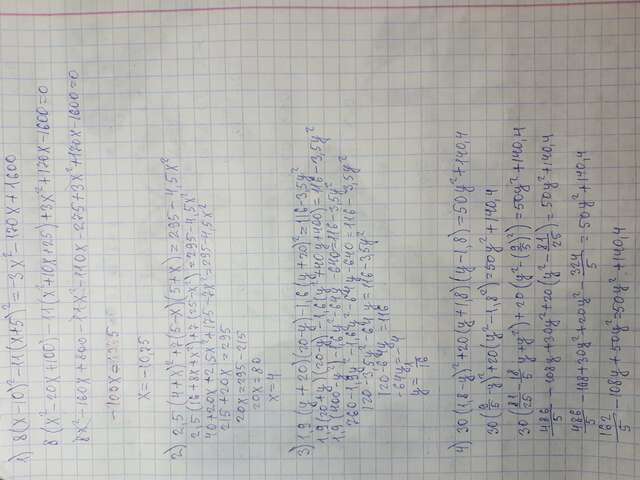 1) 8(x-10)²-11(x+5)²=-3x²-170x+1600
8(x²-20x+100)-11(x²+10x+25)+3x²+170x-1600=0
8x²-160x+800-11x²-110x-275+3x²+170x-1600=0
-100x=
x=-10,75
2) 2,5(4+x)²+7(5-x)(5+x)=295-4,5x²
2,5(16+8x+x²)+7(25-x²)=295-4,5x²
40+20x+2,5x²+175-7x²=295-4,5x²
215+20x=295
20x=295-215
20x=80
x=4
3) 1,9(y+20)(20-y)-1,6(y+20)²=116-3,5y²
1,9(20+y)(20-y)-1,6(y²+40y+400)=116-3,5y²
1,9(400-y²)-1,6y²-64y-640=116-3,5y²
760-1,9y²-1,6y²-64y-640=116-3,5y²
120-3,5y²-64y=116-3,5y²
120-64y=116
-64y=-4
y=1/16
4) 30(1,8-y)²+20(y+1,8)(y-1,8)=50y²+140,4
30(9/5-y)²+20(y²-1,8²)=50y²+140,4
30(81/25-18/5y+y²)+20(y²-(9/5)²)=50y²+140,4
486/5-108y+30y²+20(y²-81/25)=50y²+140,4
486/5-108+30y²+20y²-324/5=50y²+140,4
162/5-108y+50y²=50y²+140,4